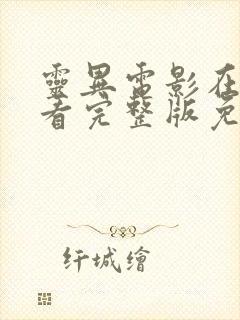 靈異電影在
看完整版免
纤城繪